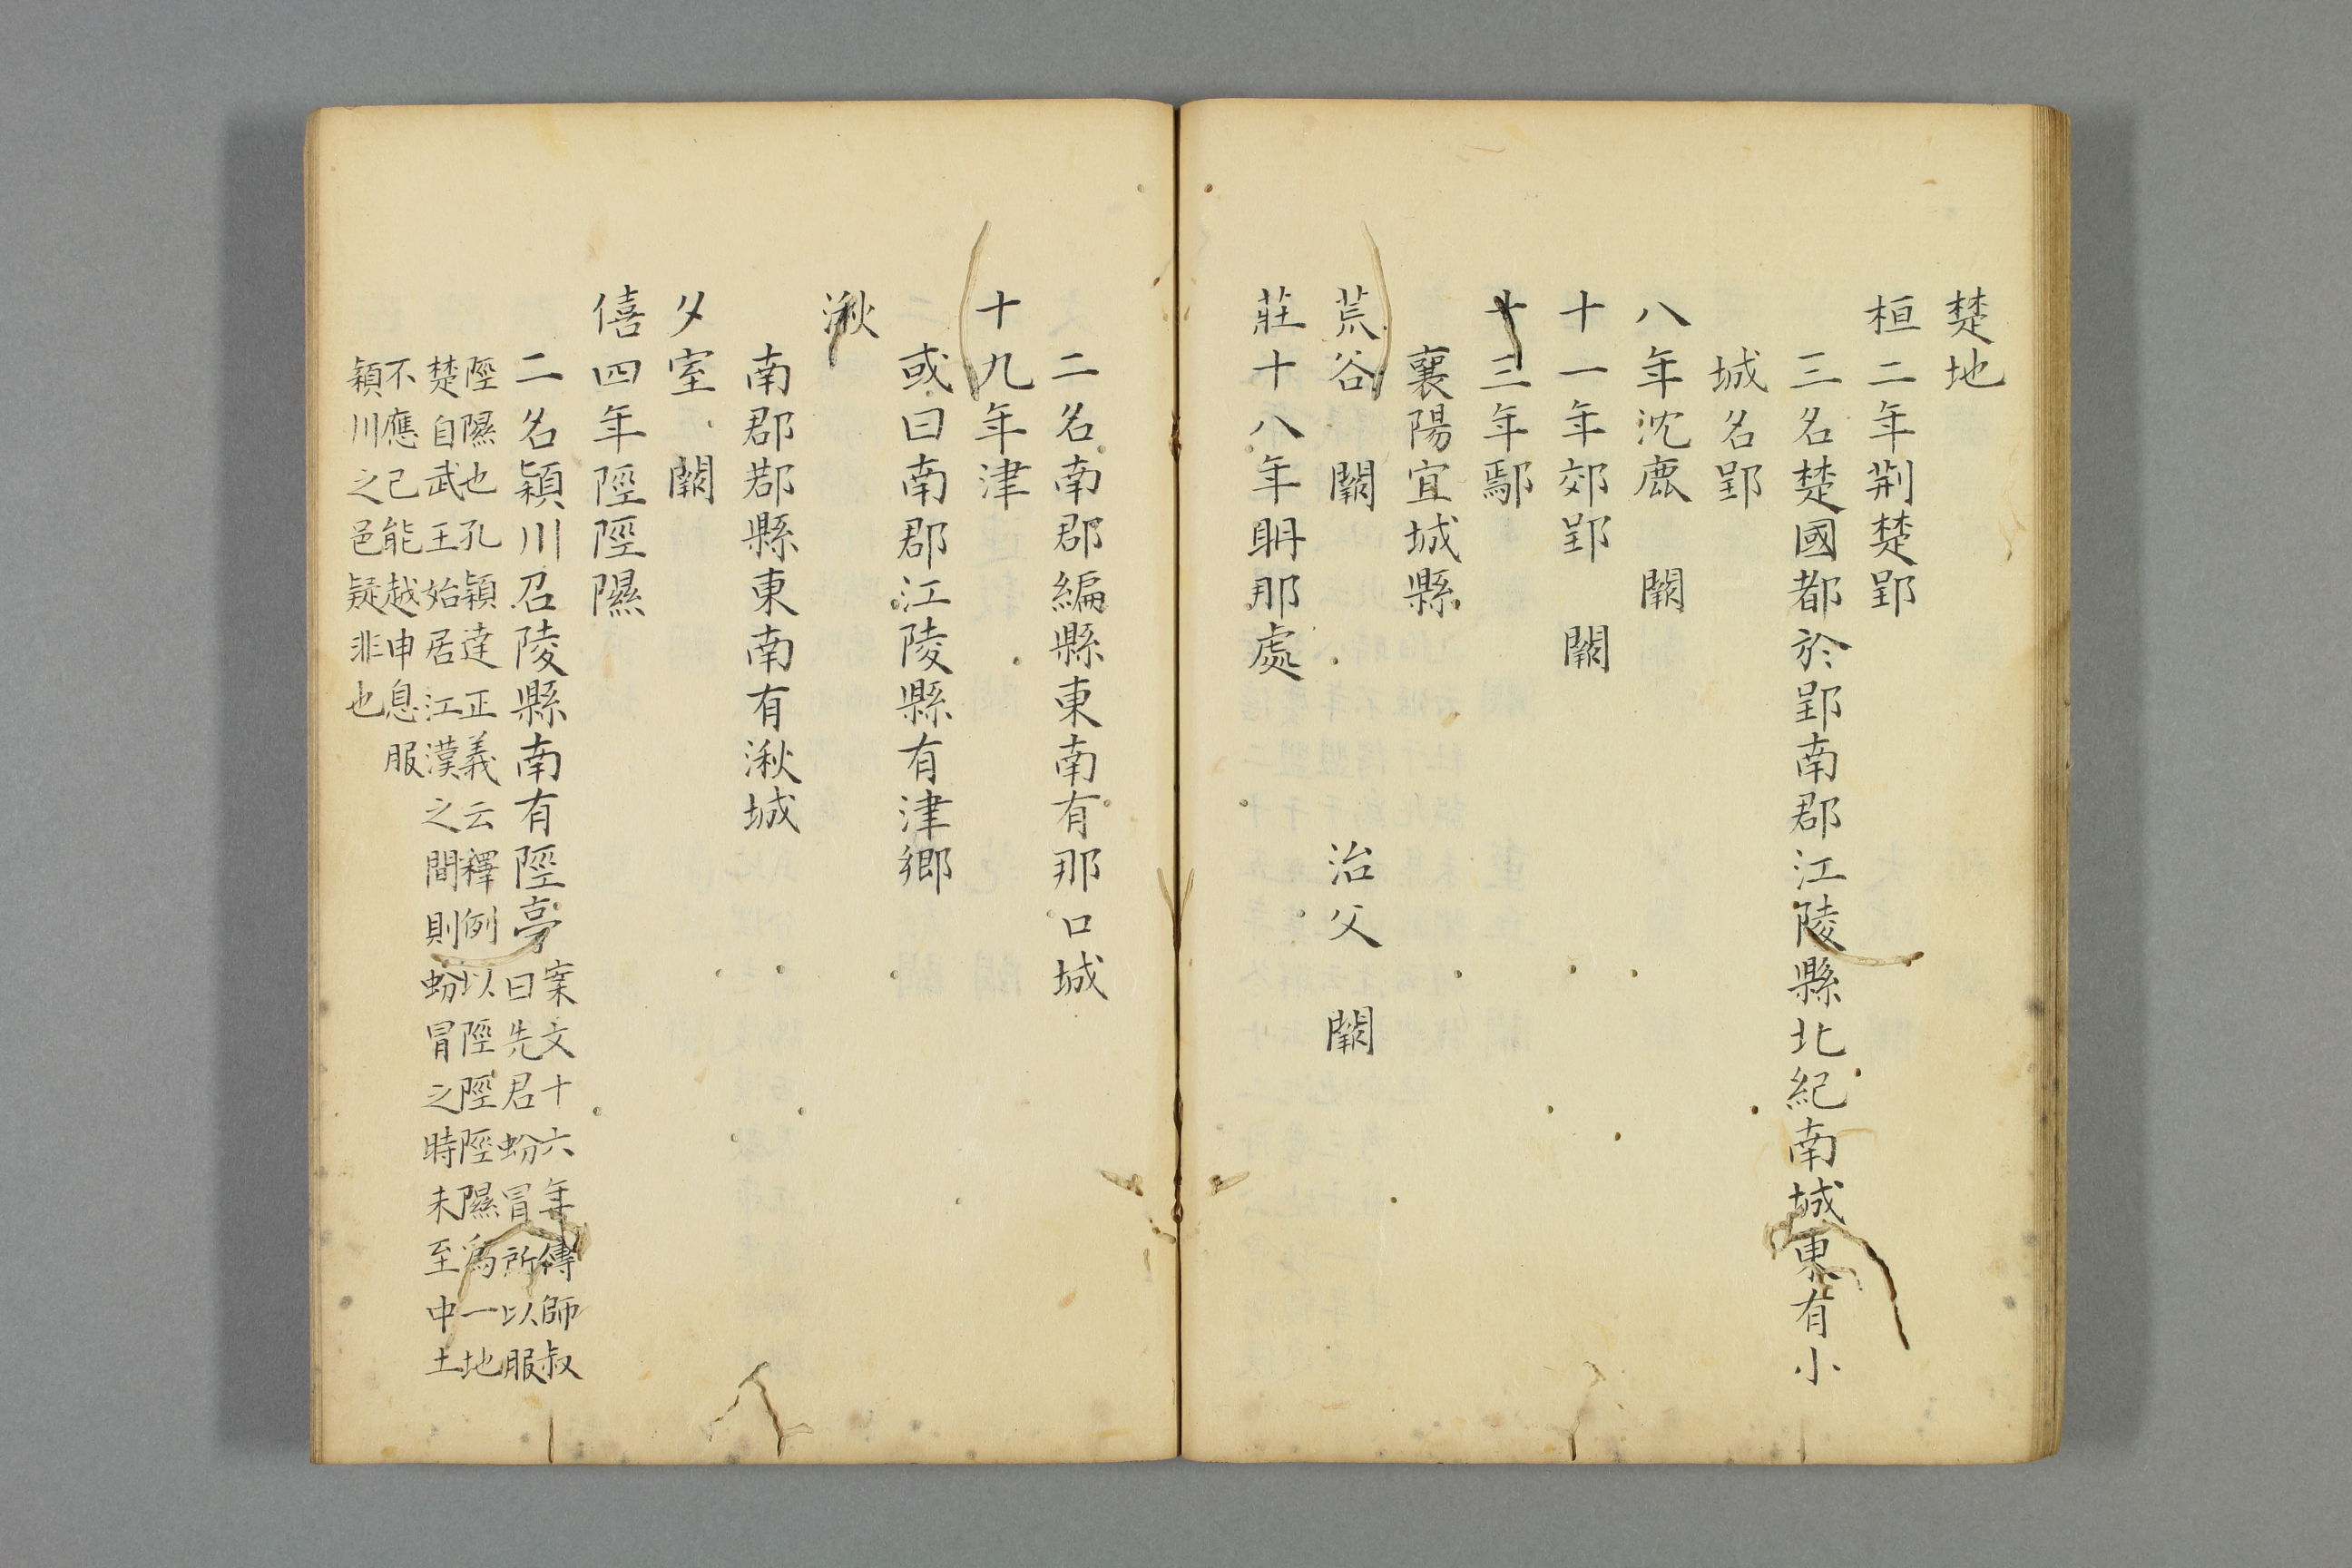 楚地
桓二年荆楚郢
三名楚國都於郢南郡江陵縣北紀南城東有小
城名郢
八年沈鹿　闕
十一年郊郢　闕
十三年鄢
襄陽宜城縣
荒谷　闕　　　　　治父　闕
莊十八年𣍧那處
二名南郡編縣東南有那口城
十九年津
或曰南郡江陵縣有津鄉
湫
南郡鄀縣東南有湫城
夕室　闕
僖四年陘陘隰
二名穎川召陵縣南有陘亭
案文十六年傳師叔
曰先君蚡冒所以服
陘隰也孔穎達正義云釋例以陘陘陘隰爲一地
楚自武王始居江漢之間則蚡冒之時未至中土
不應己能越申息服
穎川之邑疑非也